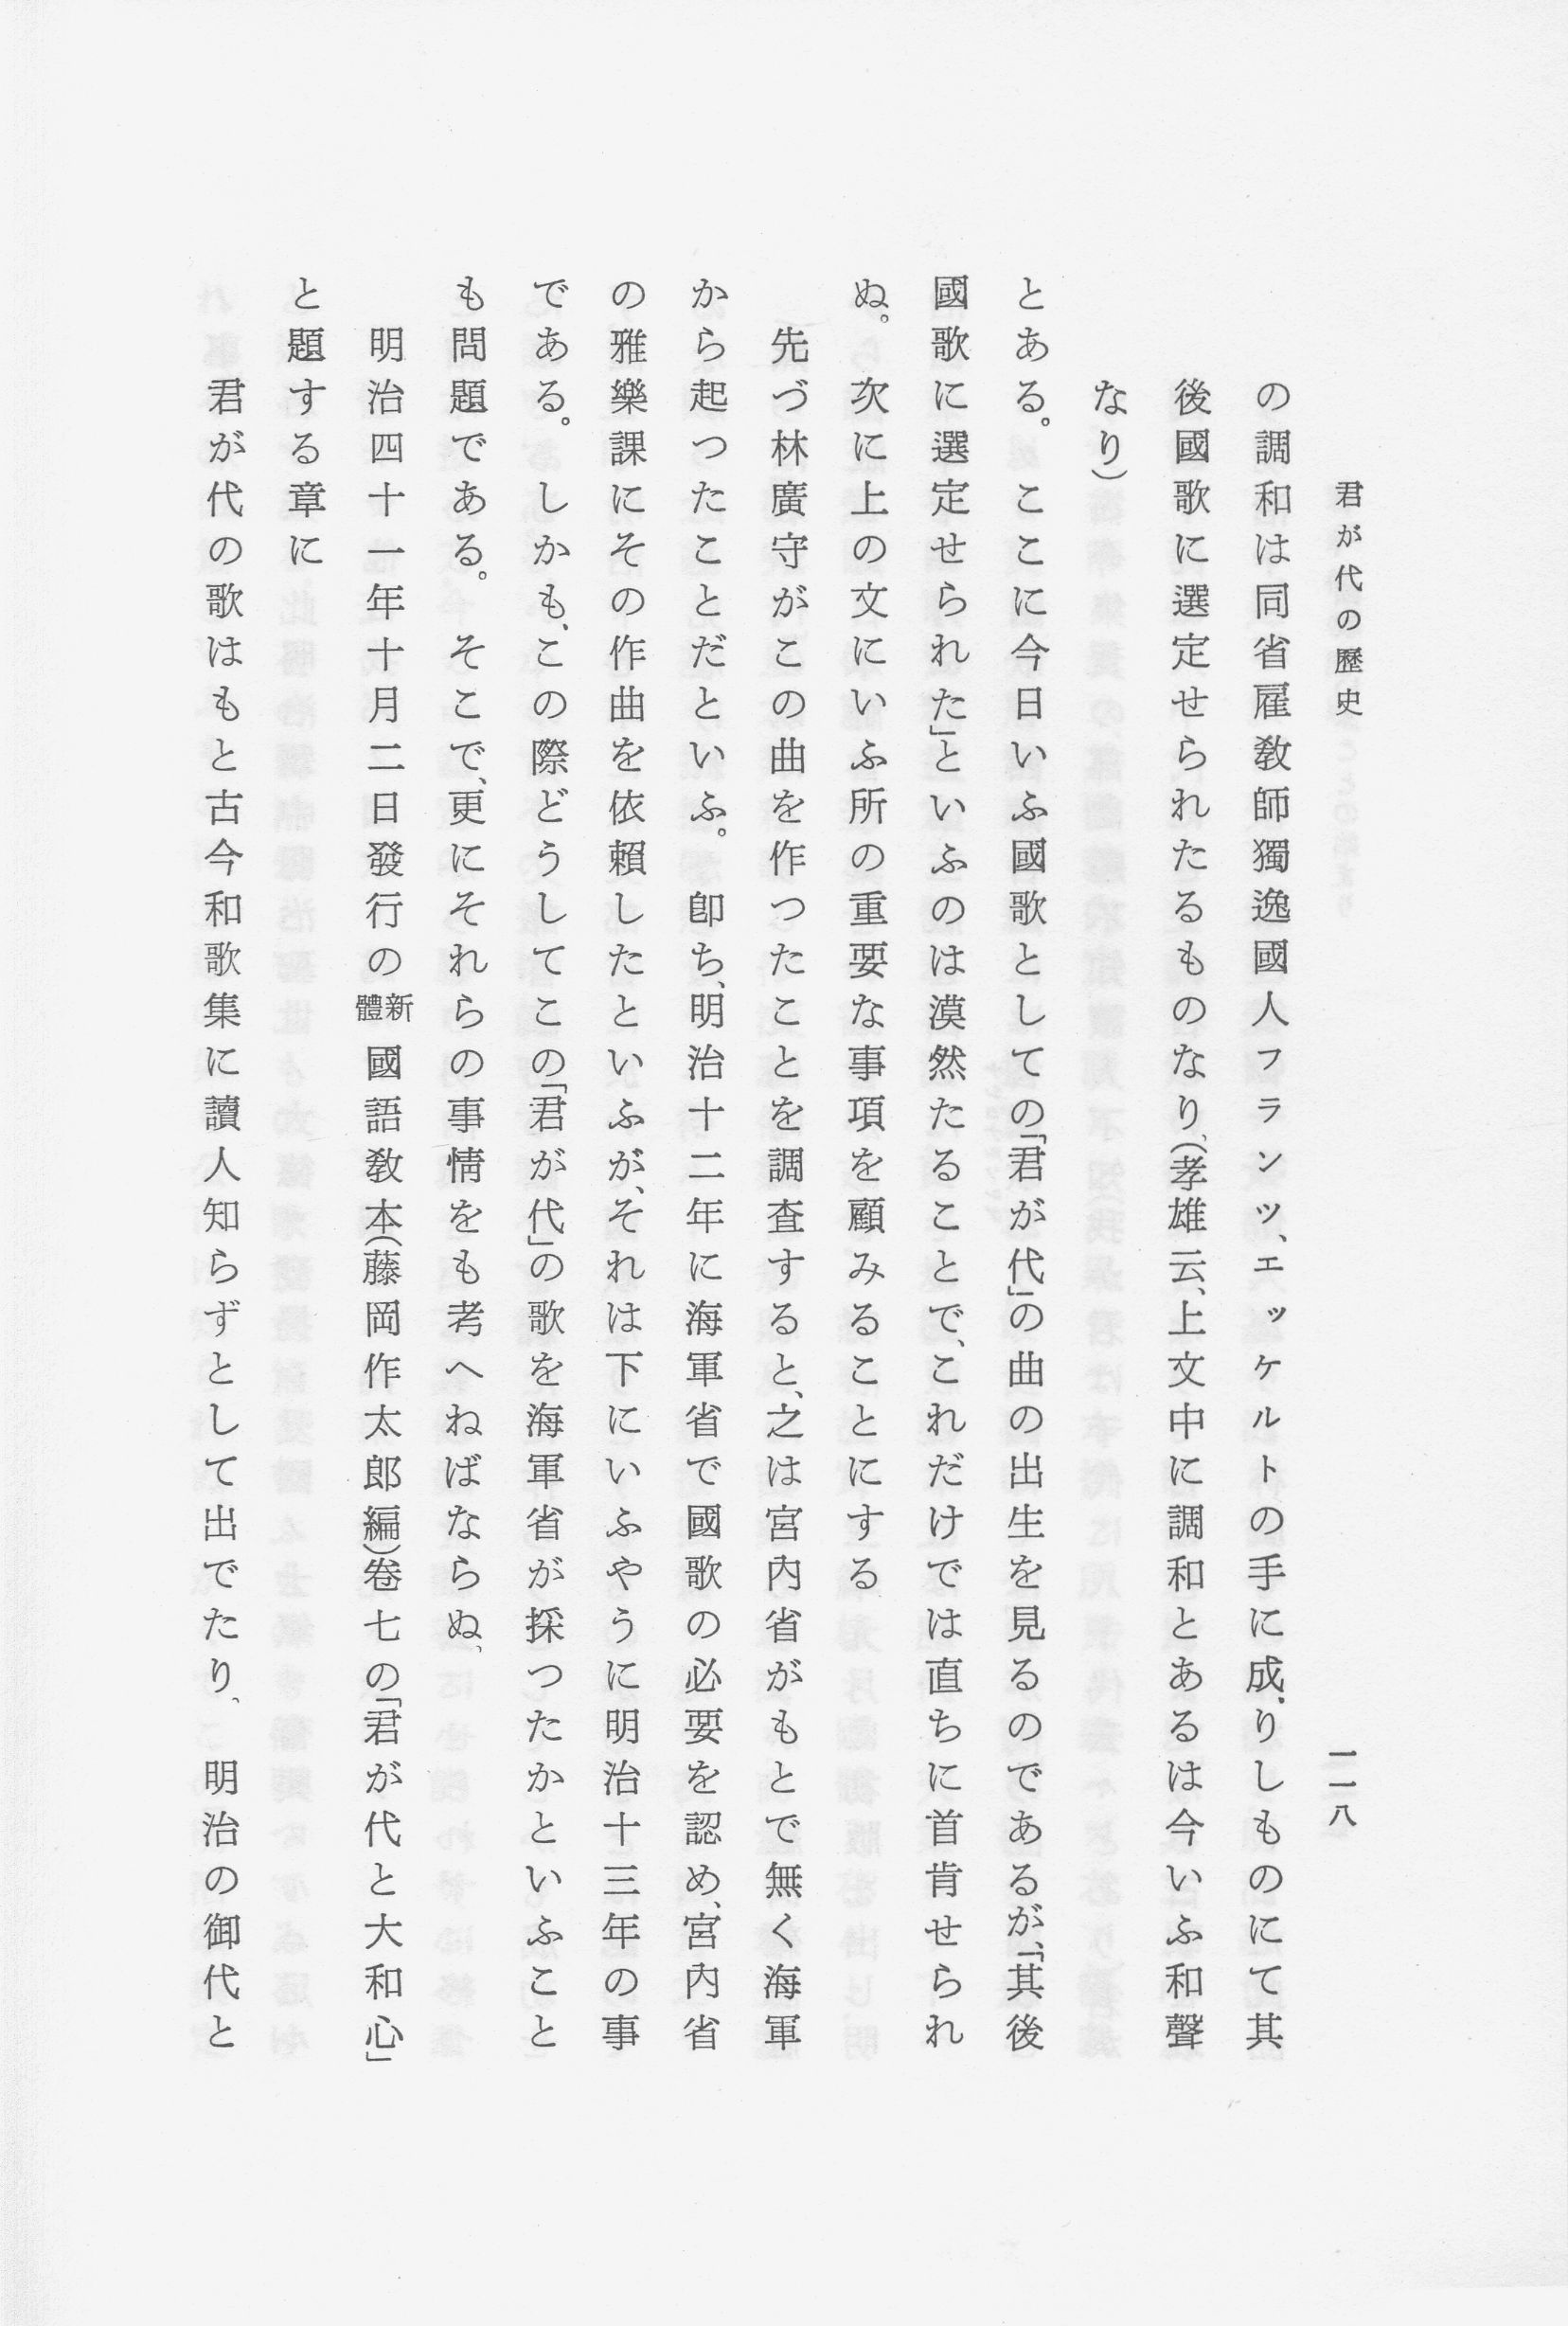 君が代の歷史
一一八
の調和は同省雇敎師獨逸國人フランツ、エッケルトの手に成りしものにて其
後國歌に選定せられたるものなり、(孝雄云、上文中に調和とあるは今いふ和聲
なり)
とある。ここに今日いふ國歌としての「君が代」の曲の出生を見るのであるが、「其後
國歌に選定せられた」といふのは漠然たることで、これだけでは直ちに首肯せられ
ぬ。次に上の文にいふ所の重要な事項を顧みることにする
先づ林廣守がこの曲を作つたことを調査すると、之は宮內省がもとで無く海軍
から起つたことだといふ。卽ち、明治十二年に海軍省で國歌の必要を認め、宮內省
の雅樂課にその作曲を依賴したといふが、それは下にいふやうに明治十三年の事
である。しかも、この際どうしてこの「君が代」の歌を海軍省が採つたかといふこと
も問題である。そこで、更にそれらの事情をも考へねばならぬ、
明治四十一年十月二日發行の新體國語敎本(藤岡作太郎編)卷七の「君が代と大和心」
と題する章に
君が代の歌はもと古今和歌集に讀人知らずとして出でたり、明治の御代と